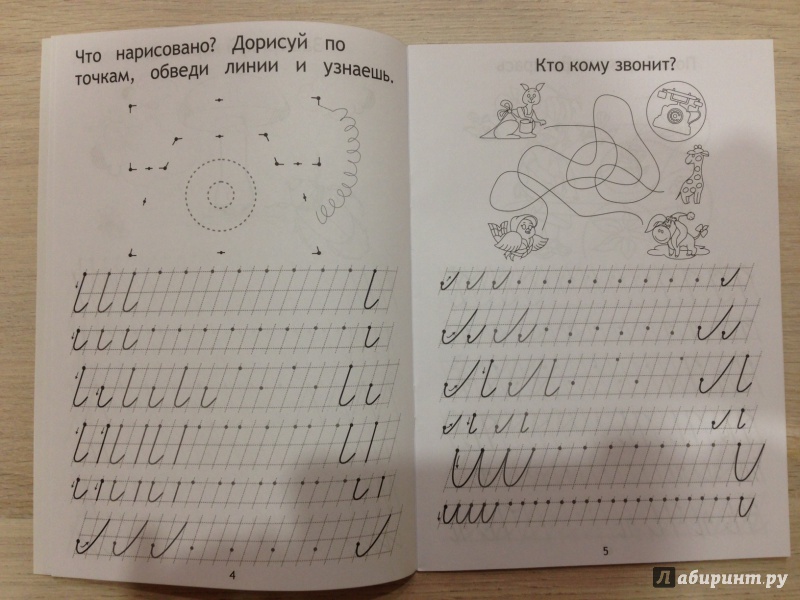 Что нарисовано? Дорисуй по
точкам, обведи линии и узнаешь.
4
Кто кому звонит?
5
Лабиринт.ру